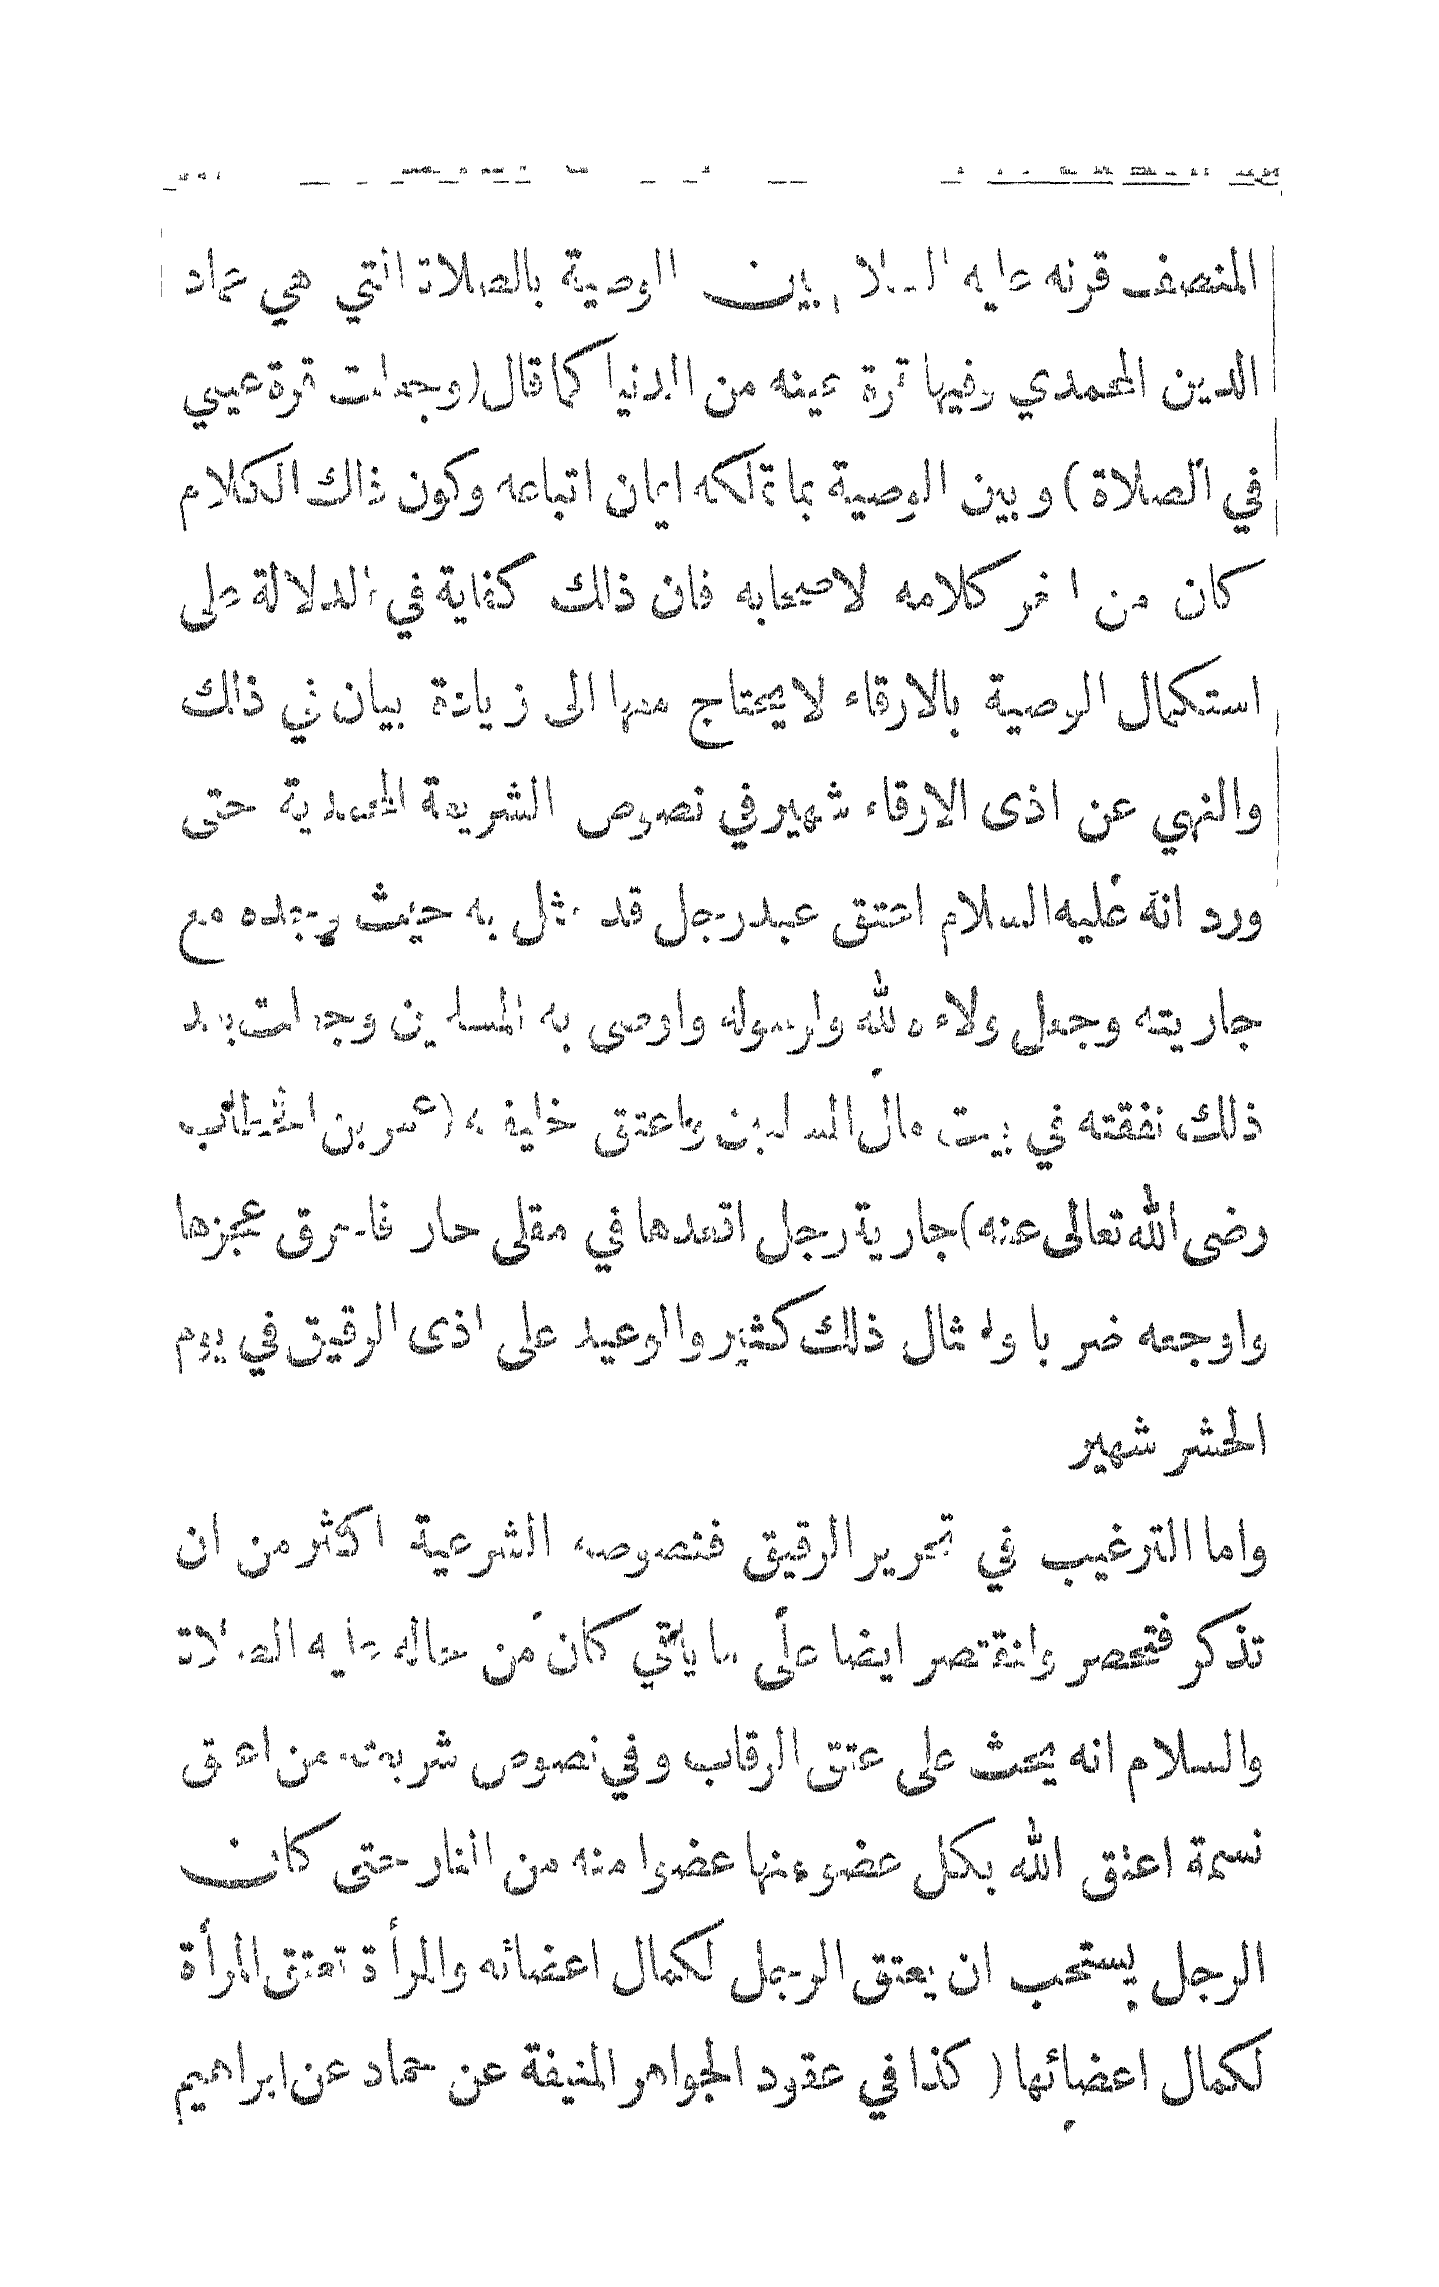 المنصف قرنه عليه السلام بين الوصية بالصلاة التي هي عماد
الدين المحمدي وفيها قرة عينه من الدنيا كما قال (وجعلت قرة عيني
في الصلاة) وبين الوصية بما تملكه ايمان اتباعه وكون ذلك الكلام
كان من اخر كلامه لاصحابه فان ذلك كفاية في الدلالة على
استكمال الوصية بالارقاء لا يحتاج معها الى زيادة بيان في ذلك
والنهي عن اذى الارقاء شهير في نصوص الشريعة المحمدية حتى
ورد انه عليه السلام اعتق عبد رجل قد مثل به حيث وجده مع
جاريته وجعل ولاءه لله ولرسوله واوصى به المسلمين وجعلت بعد
ذلك نفقته في بيت مال المسلمين واعتق خليفته (عمر بن الخطاب
رضى الله تعالى عنه) جارية رجل اقعدها في مقلى حار فاحترق عجزها
واوجعه ضربا وامثال ذلك كثير والوعيد على اذى الرقيق في يوم
الحشر شهير
واما الترغيب في تحرير الرقيق فنصوصه الشرعية اكثر من ان
تذكر فتحصر ولنقتصر ايضا على ما يأتي كان من حاله عليه الصلاة
والسلام انه يحث على عتق الرقاب وفي نصوص شريعته من اعتق
نسمة اعتق الله بكل عضو منها عضوا منه من النار حتى كان
الرجل يستحب ان يعتق الرجل لكمال اعضائه والمرأة تعتق المرأة
لكمال اعضائها (كذا في عقود الجواهر المنيفة عن حماد عن ابراهيم